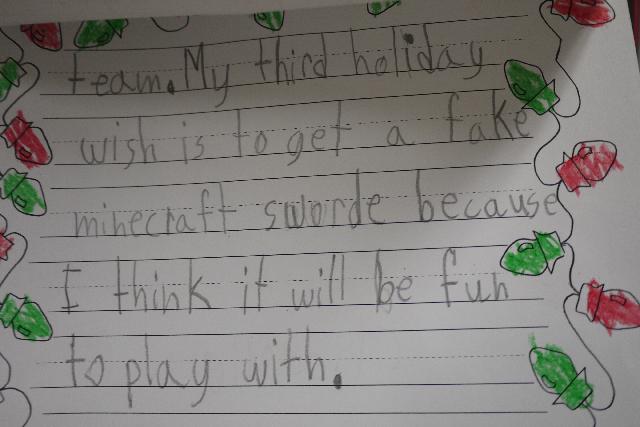 team. My third holiday
wish is to get a fake
minecraft sworde because
I think it will be fun
to play with.